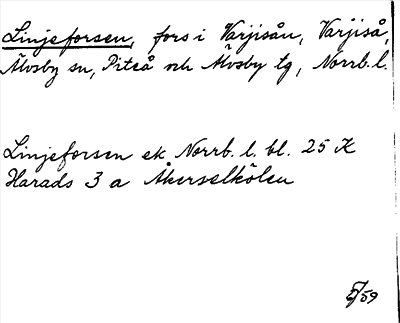 Linjeforsen, fors i Varjisån, Varjiså,
Älvsby sn, Piteå och Älvsby tg, Norrb. l.
Linjeforsen ek. Norrb. l. bl. 25 K
Harads 3 a Åkerselkölen
/59